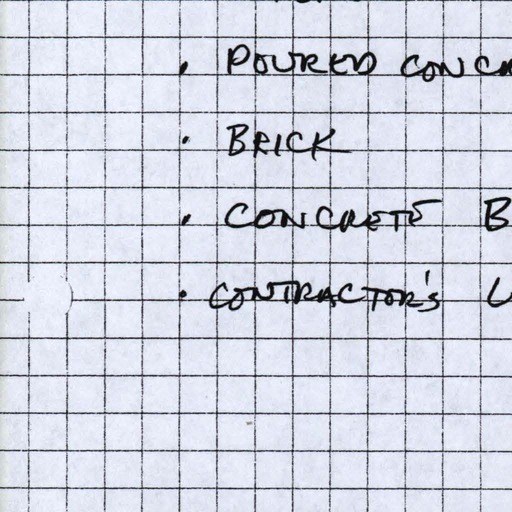 • POURED CONC
• BRICK
• CONCRETE B
• CONTRACTOR'S